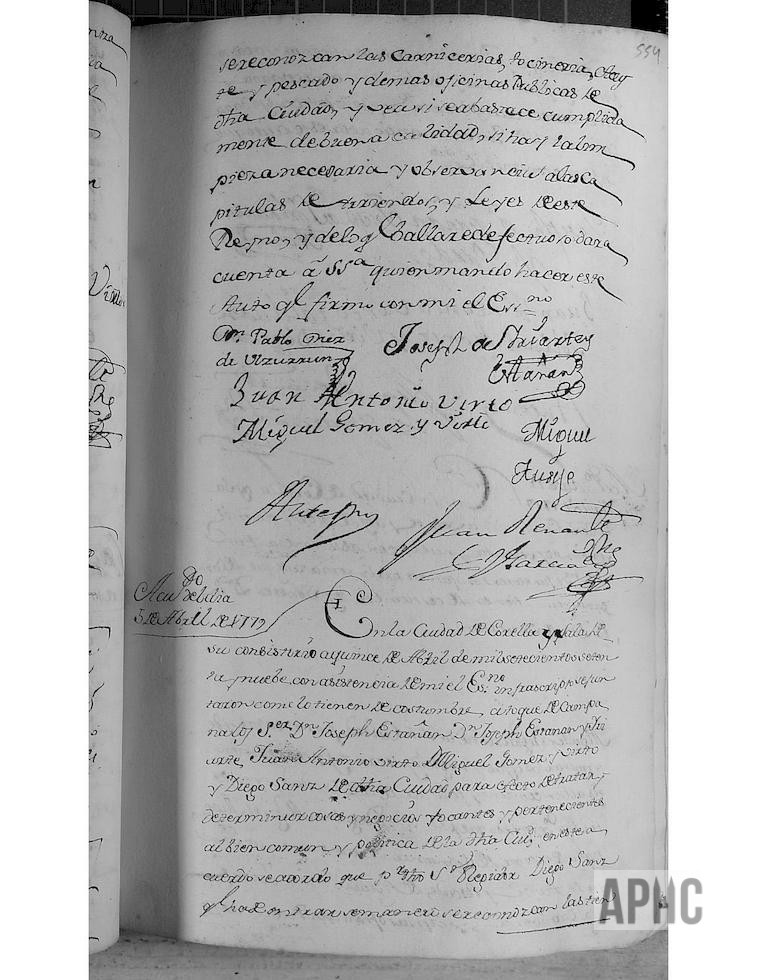 554
se reconozcan las Carnicerias, tocineria, 
te y pescado y demas oficinas Publicas de
dha Ciudad, y vea si se abastece cumplida
mente de buena calidad, si hay la lim
pieza necesaria y observancia a las Ca
pitulas de arriendos, y Leyes de este
Reyno, y de lo q hallare defectuoso dara
cuenta á SSª quien mando hacer este
Auto q firmo con mi el Essno
Dn. Pablo Diez
de Uzurrun
Joseph de
Estañan
Juan Antonio Virto
Miguel Gomez y Virto
Miguel
Ante my
Juan Renault
Garcia
Acudo del dia
de Abril de 1779
En la Ciudad de Corella y sala de
su consistorio a quince de Abril de mil setecientos seten
ta y nuebe con asistencia de mi el Esno infrascripto se jun
taron como lo tienen de costumbre, a toque de Campa
na los Sres Dn Joseph Estañan Dn Joseph Estañan y Iri
arte, Juan Antonio Virto D Miguel Gomez y Virto
y Diego Sanz de dha Ciudad para efecto de tratar y
determinar cosas y negocios tocantes y pertenecientes
al bien comun y politica de la dha Ciud. en este a
cuerdo se acordo que por dho Sr Regidor Diego Sanz
q ha de entrar semanero se reconozcan las tien
APNC